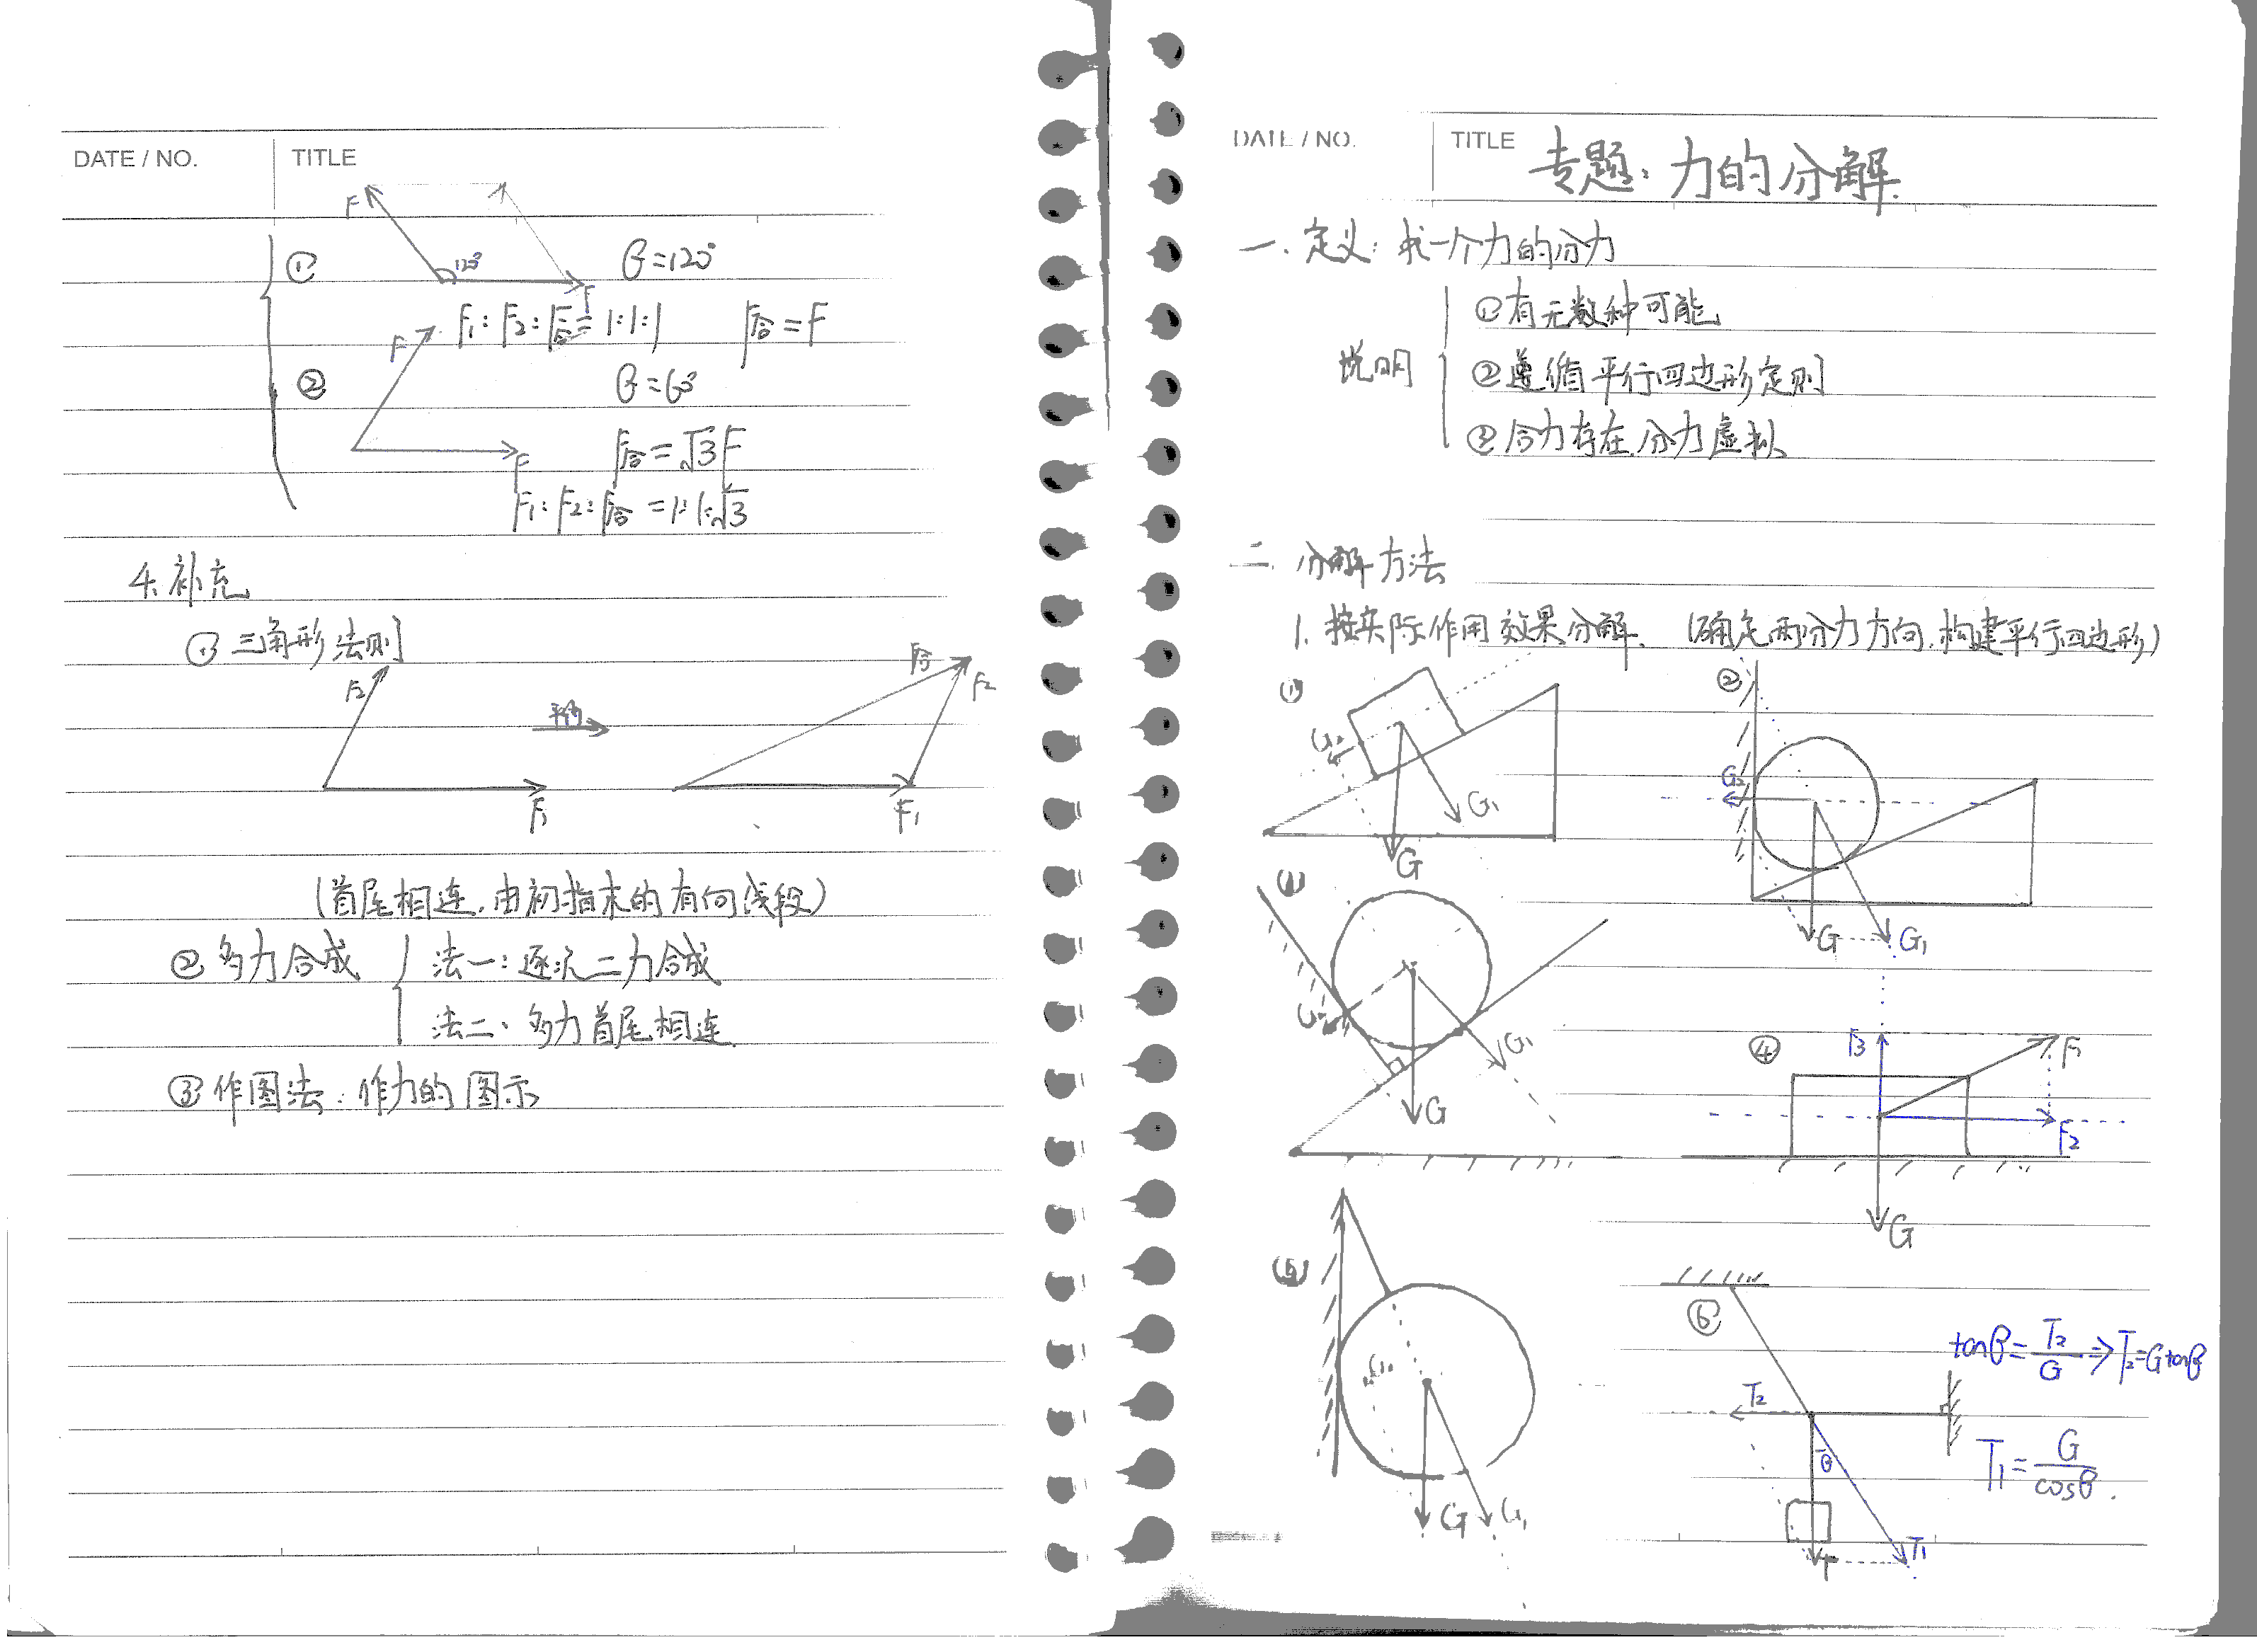 DATE / NO.
TITLE
F
120°
F
① θ=120°
F₁:F₂:F合=1:1:1 F合=F
F
② θ=60°
F
F合=√3F
F₁:F₂:F合=1:1:√3
4.补充
①三角形法则
F₂
F₁
平移
F合
F₂
F₁
(首尾相连,由初指末的有向线段)
②多力合成
法一:逐次二力合成
法二:多力首尾相连
③作图法:作力的图示
DATE / NO.
TITLE 专题:力的分解
一.定义:求一个力的分力
说明
①有无数种可能
②遵循平行四边形定则
③合力存在,分力虚拟
二.分解方法
1.按实际作用效果分解.(确定两分力方向,构建平行四边形)
①
G₂
G₁
G
②
G₂
G
G₁
G₂
G₁
G
④
F₃
F₁
F₂
G
⑤
G₂
G
G₁
⑥
tanθ=T₂/G⇒T₂=Gtanθ
T₂
θ
T₁=G/cosθ.
T₁